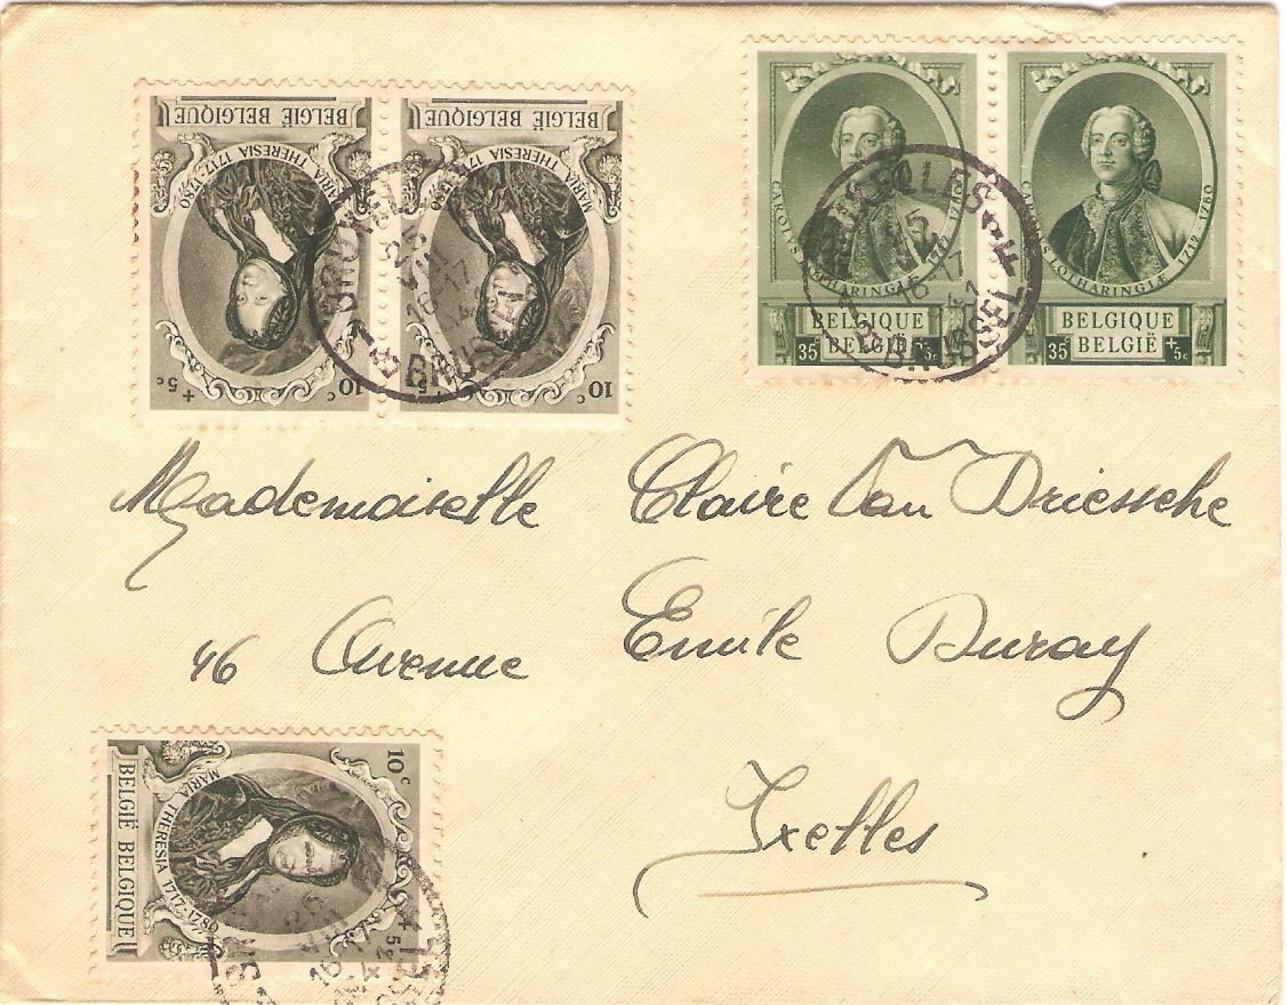 BELGIË BELGIQUE
MARIA THERESIA 1717-1780
10c + 5c
BELGIË BELGIQUE
MARIA THERESIA 17
10c + 5c
CAROLVS LOTHARINGIÆ 1780
BELGIQUE
35c BELGIË + 5c
CAROLVS LOTHARINGIÆ 1712-1780
BELGIQUE
35c BELGIË + 5c
BRUXELLES
25
VIII
16-17
1941
BRUSSEL
BRUXELLES
25
VIII
16-17
1941
BRUSSEL
Mademoiselle Claire Van Driessche
46 Avenue Emile Duray
Ixelles
BELGIË BELGIQUE
MARIA THERESIA 1717-1780
10c + 5c